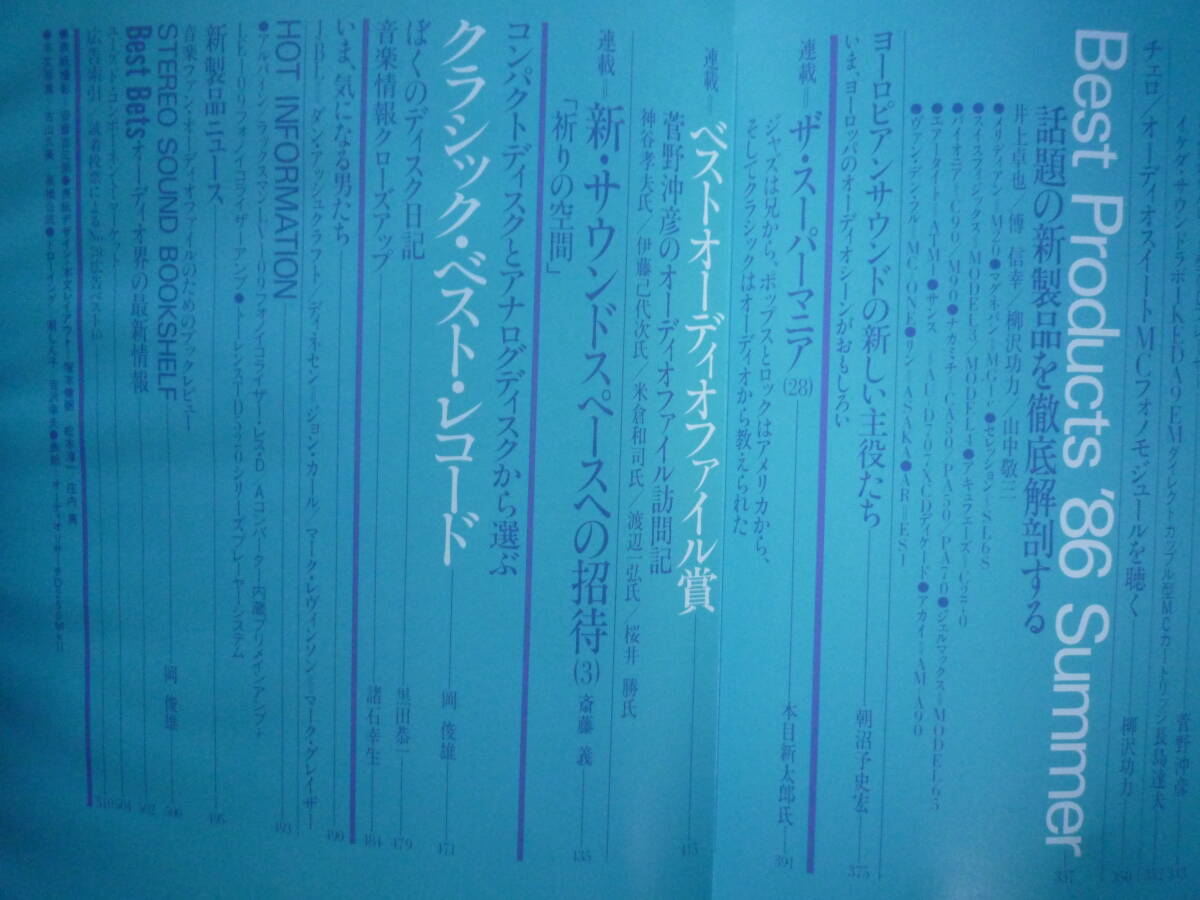 イケダ・サウンドラボーIKEDA9EMダイレクト・カップル型MCカートリッジ 長島達夫 343
菅野沖彦
チェロ/オーディオスイートMCフォノモジュールを聴く 柳沢功力 350
Best Products '86 Summer 337
話題の新製品を徹底解剖する
井上卓也/傅 信幸/柳沢功力/山中敬三
●メリディアン=M20●マグネパン=MG-I●セレッション=SL6S
●スイスフィジックス=MODEL3/MODEL4●アキュフェーズ=C-270
●パイオニア=C90/M90●ナカミチ=CA50/PA50/PA70●ジェルマックス=MODEL65
●エアータイト=ATM-1●サンスイ=AU-D707・XCDディケード●アカイ=AM-A90
●ヴァン・デン・フル=MC ONE●リン=ASAKA●AR=ES1
ヨーロピアンサウンドの新しい主役たち 朝沼予史宏 375
いま、ヨーロッパのオーディオシーンがおもしろい
連載=ザ・スーパーマニア(28) 本目新太郎氏 391
ジャズは兄から、ポップスとロックはアメリカから、
そしてクラシックはオーディオから教えられた
連載=ベストオーディオファイル賞 413
菅野沖彦のオーディオファイル訪問記
神谷孝夫氏/伊藤己代次氏/米倉和司氏/渡辺一弘氏/桜井 勝氏
連載=新・サウンドスペースへの招待(3) 斎藤 義 435
「祈りの空間」
コンパクトディスクとアナログディスクから選ぶ
クラシック・ベスト・レコード 岡 俊雄 471
ぼくのディスク日記 黒田恭一 479
音楽情報クローズアップ 諸石幸生 484
いま、気になる男たち 490
JBL=ダン・アッシュクラフト/ディネセン=ジョン・カール/マーク・レヴィンソン=マーク・グレイザー
HOT INFORMATION 493
●アルパイン・ラックスマンLV-109フォノイコライザー・レス・D/Aコンバーター内蔵プリメインアンプ+
LE-109フォノイコライザーアンプ●トーレンスTD320シリーズ・プレーヤーシステム
新製品ニュース 495
音楽ファン・オーディオファイルのためのブックレビュー
STEREO SOUND BOOKSHELF 岡 俊雄 500
Best Betsオーディオ界の最新情報 502
ユーズド・コンポーネント・マーケット 504
広告索引 読者投票によるNo.78広告ベスト10 510